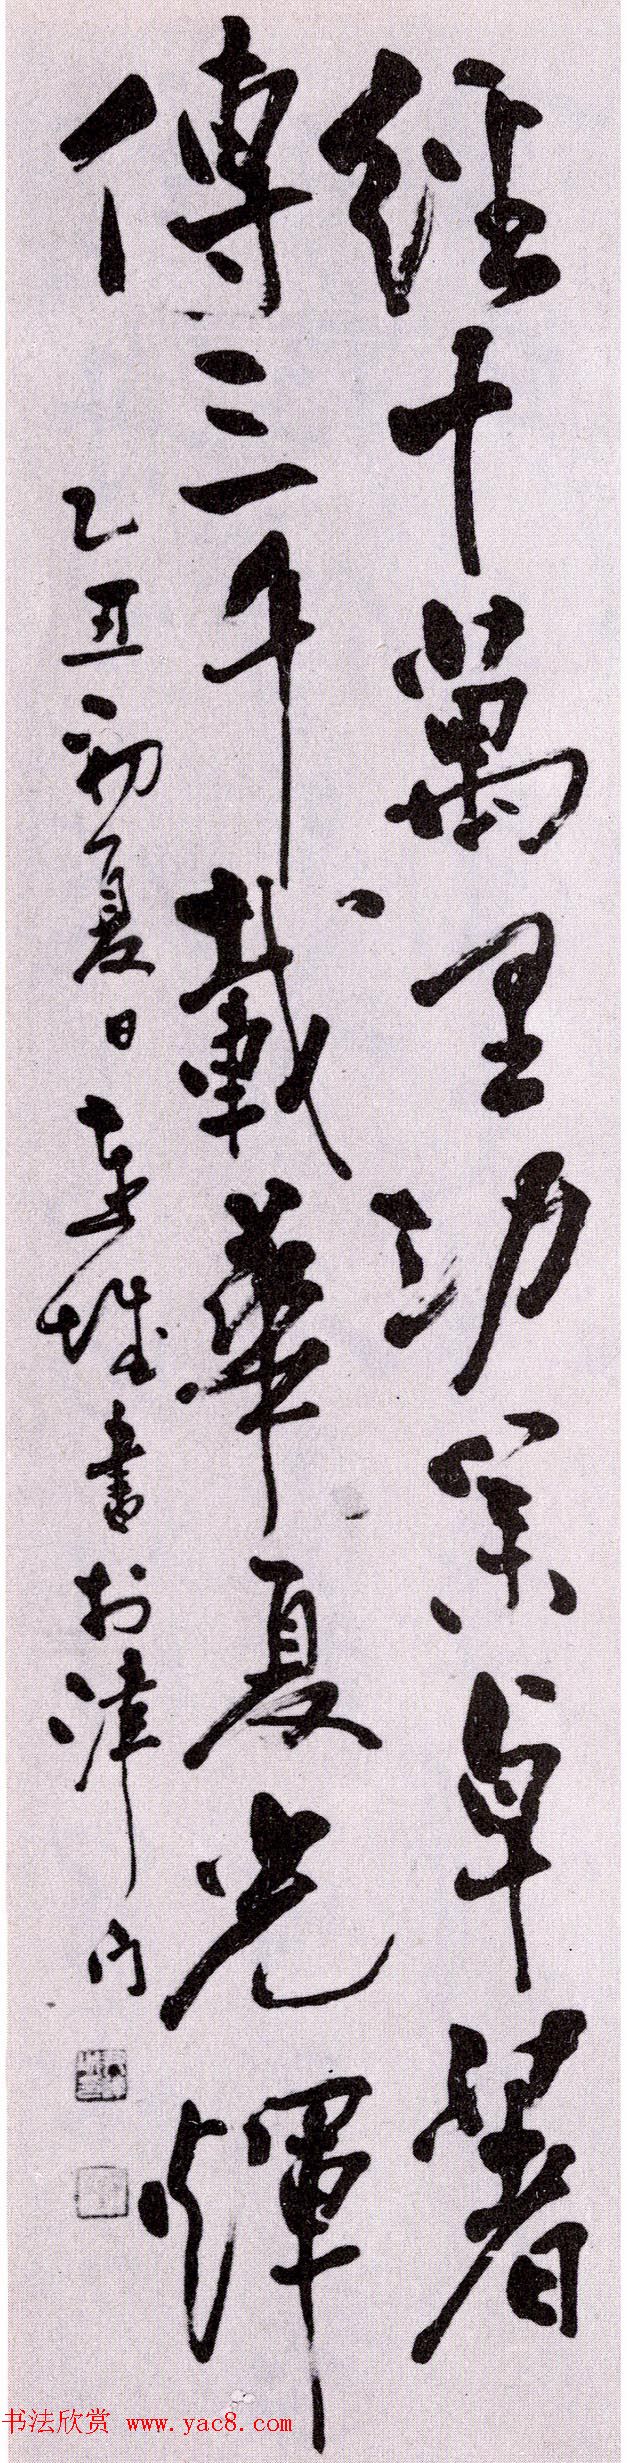 經十萬里功業卓著
傳三千載華夏光煇
乙丑初夏日書於津門
书法欣赏 www.yac8.com